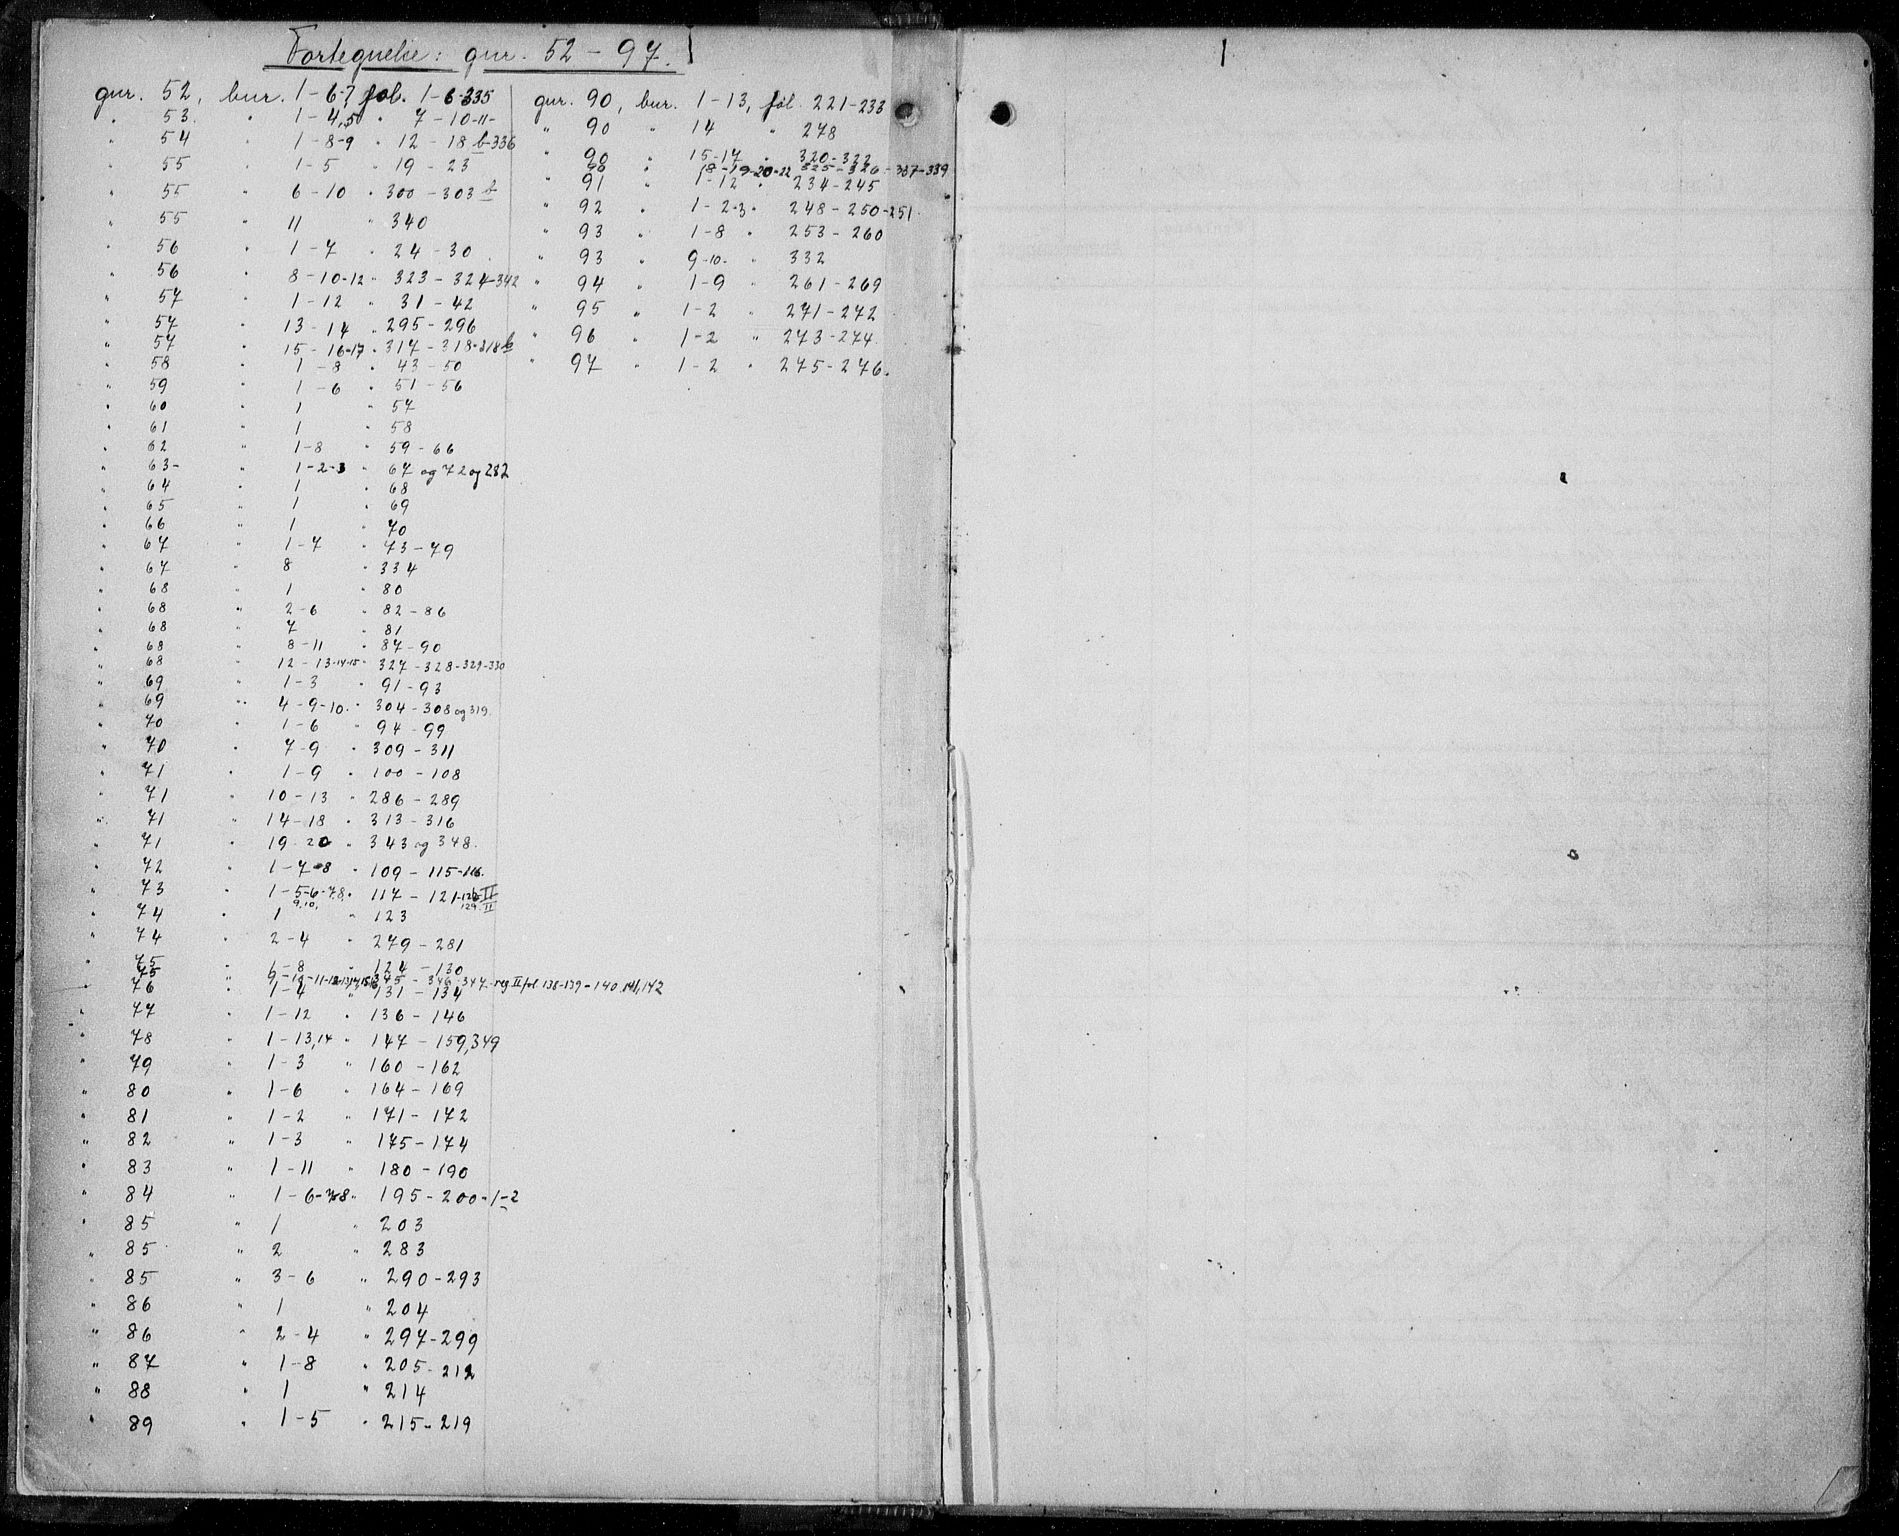 Fortegnelse: gnr. 52 - 97.
gnr. 52, bnr. 1-6-7 fol. 1-6-335
" 53 " 1-4,5 " 7-10-11-
" 54 " 1-8-9 " 12-18 b-336
" 55 " 1-5 " 19-23
" 55 " 6-10 " 300-303 b
" 55 " 11 " 340
" 56 " 1-7 " 24-30
" 56 " 8-10-12 " 323-324-342
" 57 " 1-12 " 31-42
" 57 " 13-14 " 295-296
" 57 " 15-16-17 " 317-318-318b
" 58 " 1-8 " 43-50
" 59 " 1-6 " 51-56
" 60 " 1 " 57
" 61 " 1 " 58
" 62 " 1-8 " 59-66
" 63- " 1-2-3 " 67 og 72 og 282
" 64 " 1 " 68
" 65 " 1 " 69
" 66 " 1 " 70
" 67 " 1-7 " 73-79
" 67 " 8 " 334
" 68 " 1 " 80
" 68 " 2-6 " 82-86
" 68 " 7 " 81
" 68 " 8-11 " 87-90
" 68 " 12-13-14-15 " 327-328-329-330
" 69 " 1-3 " 91-93
" 69 " 4-9-10. " 304-308 og 319.
" 70 " 1-6 " 94-99
" 70 " 7-9 " 309-311
" 71 " 1-9 " 100-108
" 71 " 10-13 " 286-289
" 71 " 14-18 " 313-316
" 71 " 19-20 " 343 og 348.
" 72 " 1-7-8 " 109-115-116.
" 73 " 1-5-6-7,8, " 117-121-126-II
9,10, 129-II
" 74 " 1 " 123
" 74 " 2-4 " 279-281
" 75 " 1-8 " 124-130
" 75 " 9-10-11-12-13,14,15,16 345-346-347- reg II fol 138-139-140,141,142
" 76 " 1-4 " 131-134
" 77 " 1-12 " 136-146
" 78 " 1-13,14 " 147-159,349
" 79 " 1-3 " 160-162
" 80 " 1-6 " 164-169
" 81 " 1-2 " 171-172
" 82 " 1-3 " 175-174
" 83 " 1-11 " 180-190
" 84 " 1-6-7-8 " 195-200-1-2
" 85 " 1 " 203
" 85 " 2 " 283
" 85 " 3-6 " 290-293
" 86 " 1 " 204
" 86 " 2-4 " 297-299
" 87 " 1-8 " 205-212
" 88 " 1 " 214
" 89 " 1-5 " 215-219
gnr. 90, bnr. 1-13, fol. 221-233
" 90 " 14 " 278
" 90 " 15-17 " 320-322
" 90 " 18-19-20-22 325-326-337-339
" 91 " 1-12 " 234-245
" 92 " 1-2-3 " 248-250-251
" 93 " 1-8 " 253-260
" 93 " 9-10- " 332
" 94 " 1-9 " 261-269
" 95 " 1-2 " 271-272
" 96 " 1-2 " 273-274
" 97 " 1-2 " 275-276.